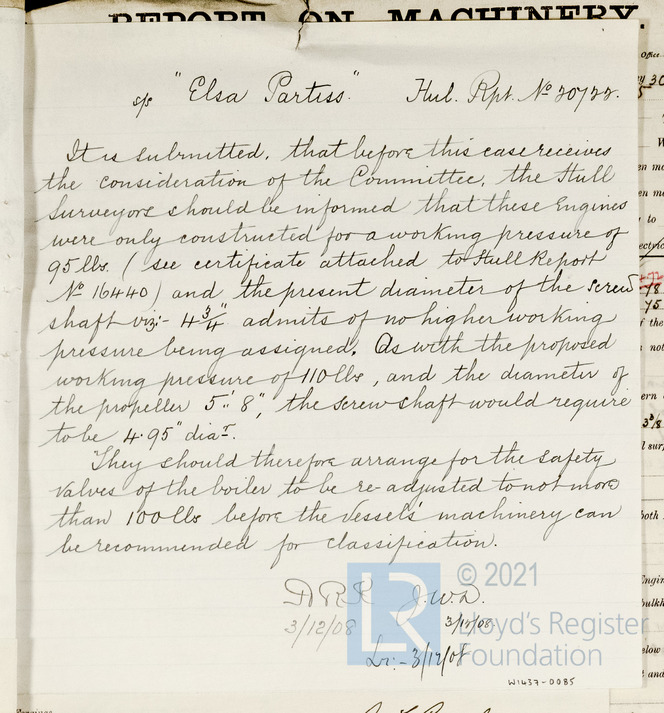 REPORT ON MACHINERY
s/s "Elsa Partiss" Hul. Rpt. No 20722.
It is submitted, that before this case receives
the consideration of the Committee, the Hull
Surveyors should be informed that these Engines
were only constructed for a working pressure of
95 lbs. (see certificate attached to Hull Report
No 16440) and the present diameter of the screw
shaft viz:- 4 3/4" admits of no higher working
pressure being assigned. As with the proposed
working pressure of 110 lbs, and the diameter of
the propeller 5'.8", the screw shaft would require
to be 4.95" diar.
They should therefore arrange for the safety
valves of the boiler to be re-adjusted to not more
than 100 lbs before the Vessel's machinery can
be recommended for classification.
J.W.D.
3/12/08 3/12/08
3/12/08
© 2021
LR Lloyd's Register
Foundation
W1437-0085